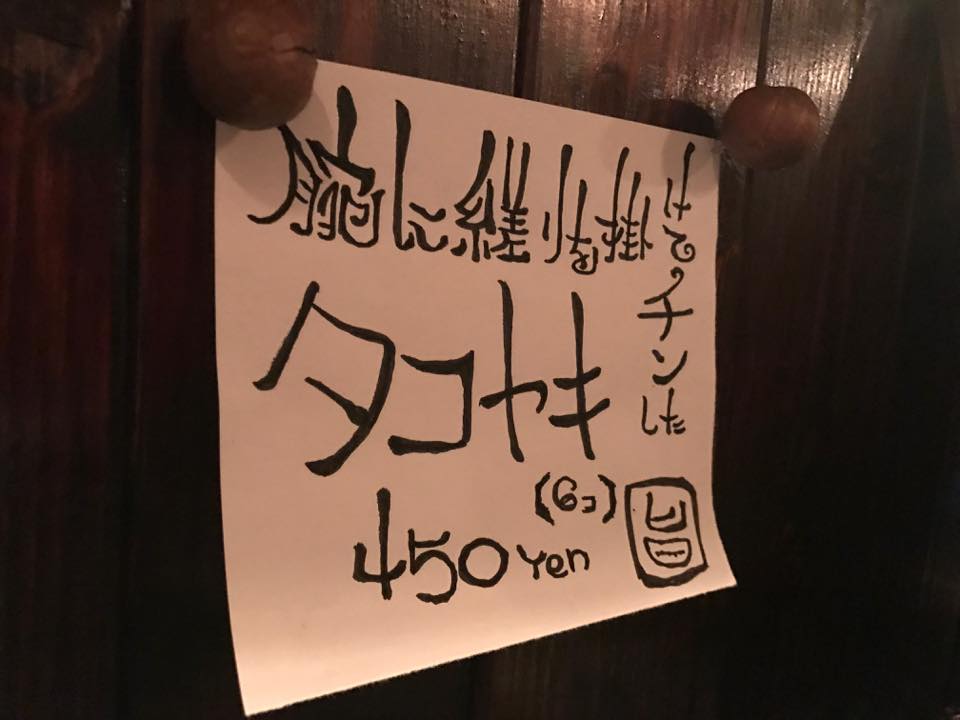 腕に縒りを掛
けて。チンした
タコヤキ
(6コ)
450 Yen
旨